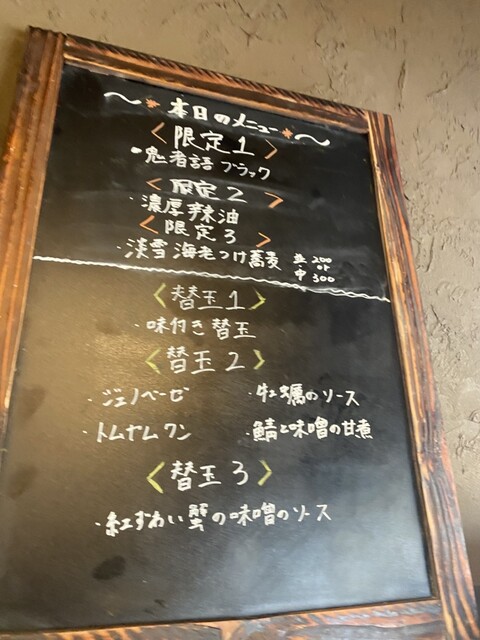 〜*本日のメニュー*〜
<限定1>
・鬼者語 ブラック
<限定2>
・濃厚辣油
<限定3>
・淡雪海老つけ蕎麦 並200 or 中300
<替玉1>
・味付き替玉
<替玉2>
・ジェノベーゼ ・牡蠣のソース
・トムナムワン ・鯖と味噌の甘煮
<替玉3>
・紅ずわい蟹の味噌のソース